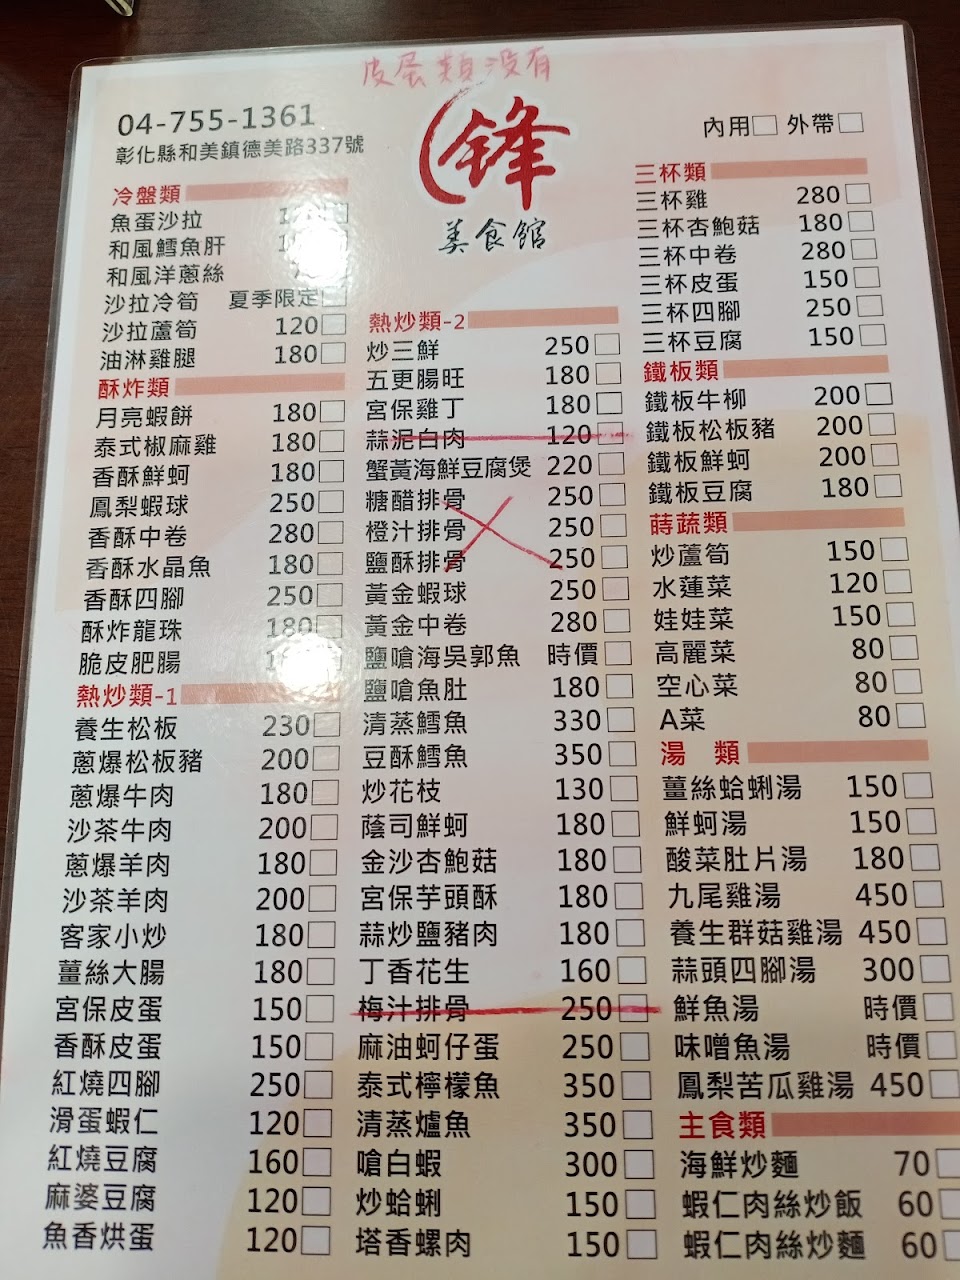 皮蛋類沒有
04-755-1361
彰化縣和美鎮德美路337號
鋒
美食館
內用□ 外帶□
冷盤類
魚蛋沙拉
和風鱈魚肝
和風洋蔥絲
沙拉冷筍 夏季限定
沙拉蘆筍 120
油淋雞腿 180
酥炸類
月亮蝦餅 180
泰式椒麻雞 180
香酥鮮蚵 180
鳳梨蝦球 250
香酥中卷 280
香酥水晶魚 180
香酥四腳 250
酥炸龍珠 180
脆皮肥腸
熱炒類-1
養生松板 230
蔥爆松板豬 200
蔥爆牛肉 180
沙茶牛肉 200
蔥爆羊肉 180
沙茶羊肉 200
客家小炒 180
薑絲大腸 180
宮保皮蛋 150
香酥皮蛋 150
紅燒四腳 250
滑蛋蝦仁 120
紅燒豆腐 160
麻婆豆腐 120
魚香烘蛋 120
熱炒類-2
炒三鮮 250
五更腸旺 180
宮保雞丁 180
蒜泥白肉 120
蟹黃海鮮豆腐煲 220
糖醋排骨 250
橙汁排骨 250
鹽酥排骨 250
黃金蝦球 250
黃金中卷 280
鹽嗆海吳郭魚 時價
鹽嗆魚肚 180
清蒸鱈魚 330
豆酥鱈魚 350
炒花枝 130
蔭司鮮蚵 180
金沙杏鮑菇 180
宮保芋頭酥 180
蒜炒鹽豬肉 180
丁香花生 160
梅汁排骨 250
麻油蚵仔蛋 250
泰式檸檬魚 350
清蒸爐魚 350
嗆白蝦 300
炒蛤蜊 150
塔香螺肉 150
三杯類
三杯雞 280
三杯杏鮑菇 180
三杯中卷 280
三杯皮蛋 150
三杯四腳 250
三杯豆腐 150
鐵板類
鐵板牛柳 200
鐵板松板豬 200
鐵板鮮蚵 200
鐵板豆腐 180
蒔蔬類
炒蘆筍 150
水蓮菜 120
娃娃菜 150
高麗菜 80
空心菜 80
A菜 80
湯 類
薑絲蛤蜊湯 150
鮮蚵湯 150
酸菜肚片湯 180
九尾雞湯 450
養生群菇雞湯 450
蒜頭四腳湯 300
鮮魚湯 時價
味噌魚湯 時價
鳳梨苦瓜雞湯 450
主食類
海鮮炒麵 70
蝦仁肉絲炒飯 60
蝦仁肉絲炒麵 60